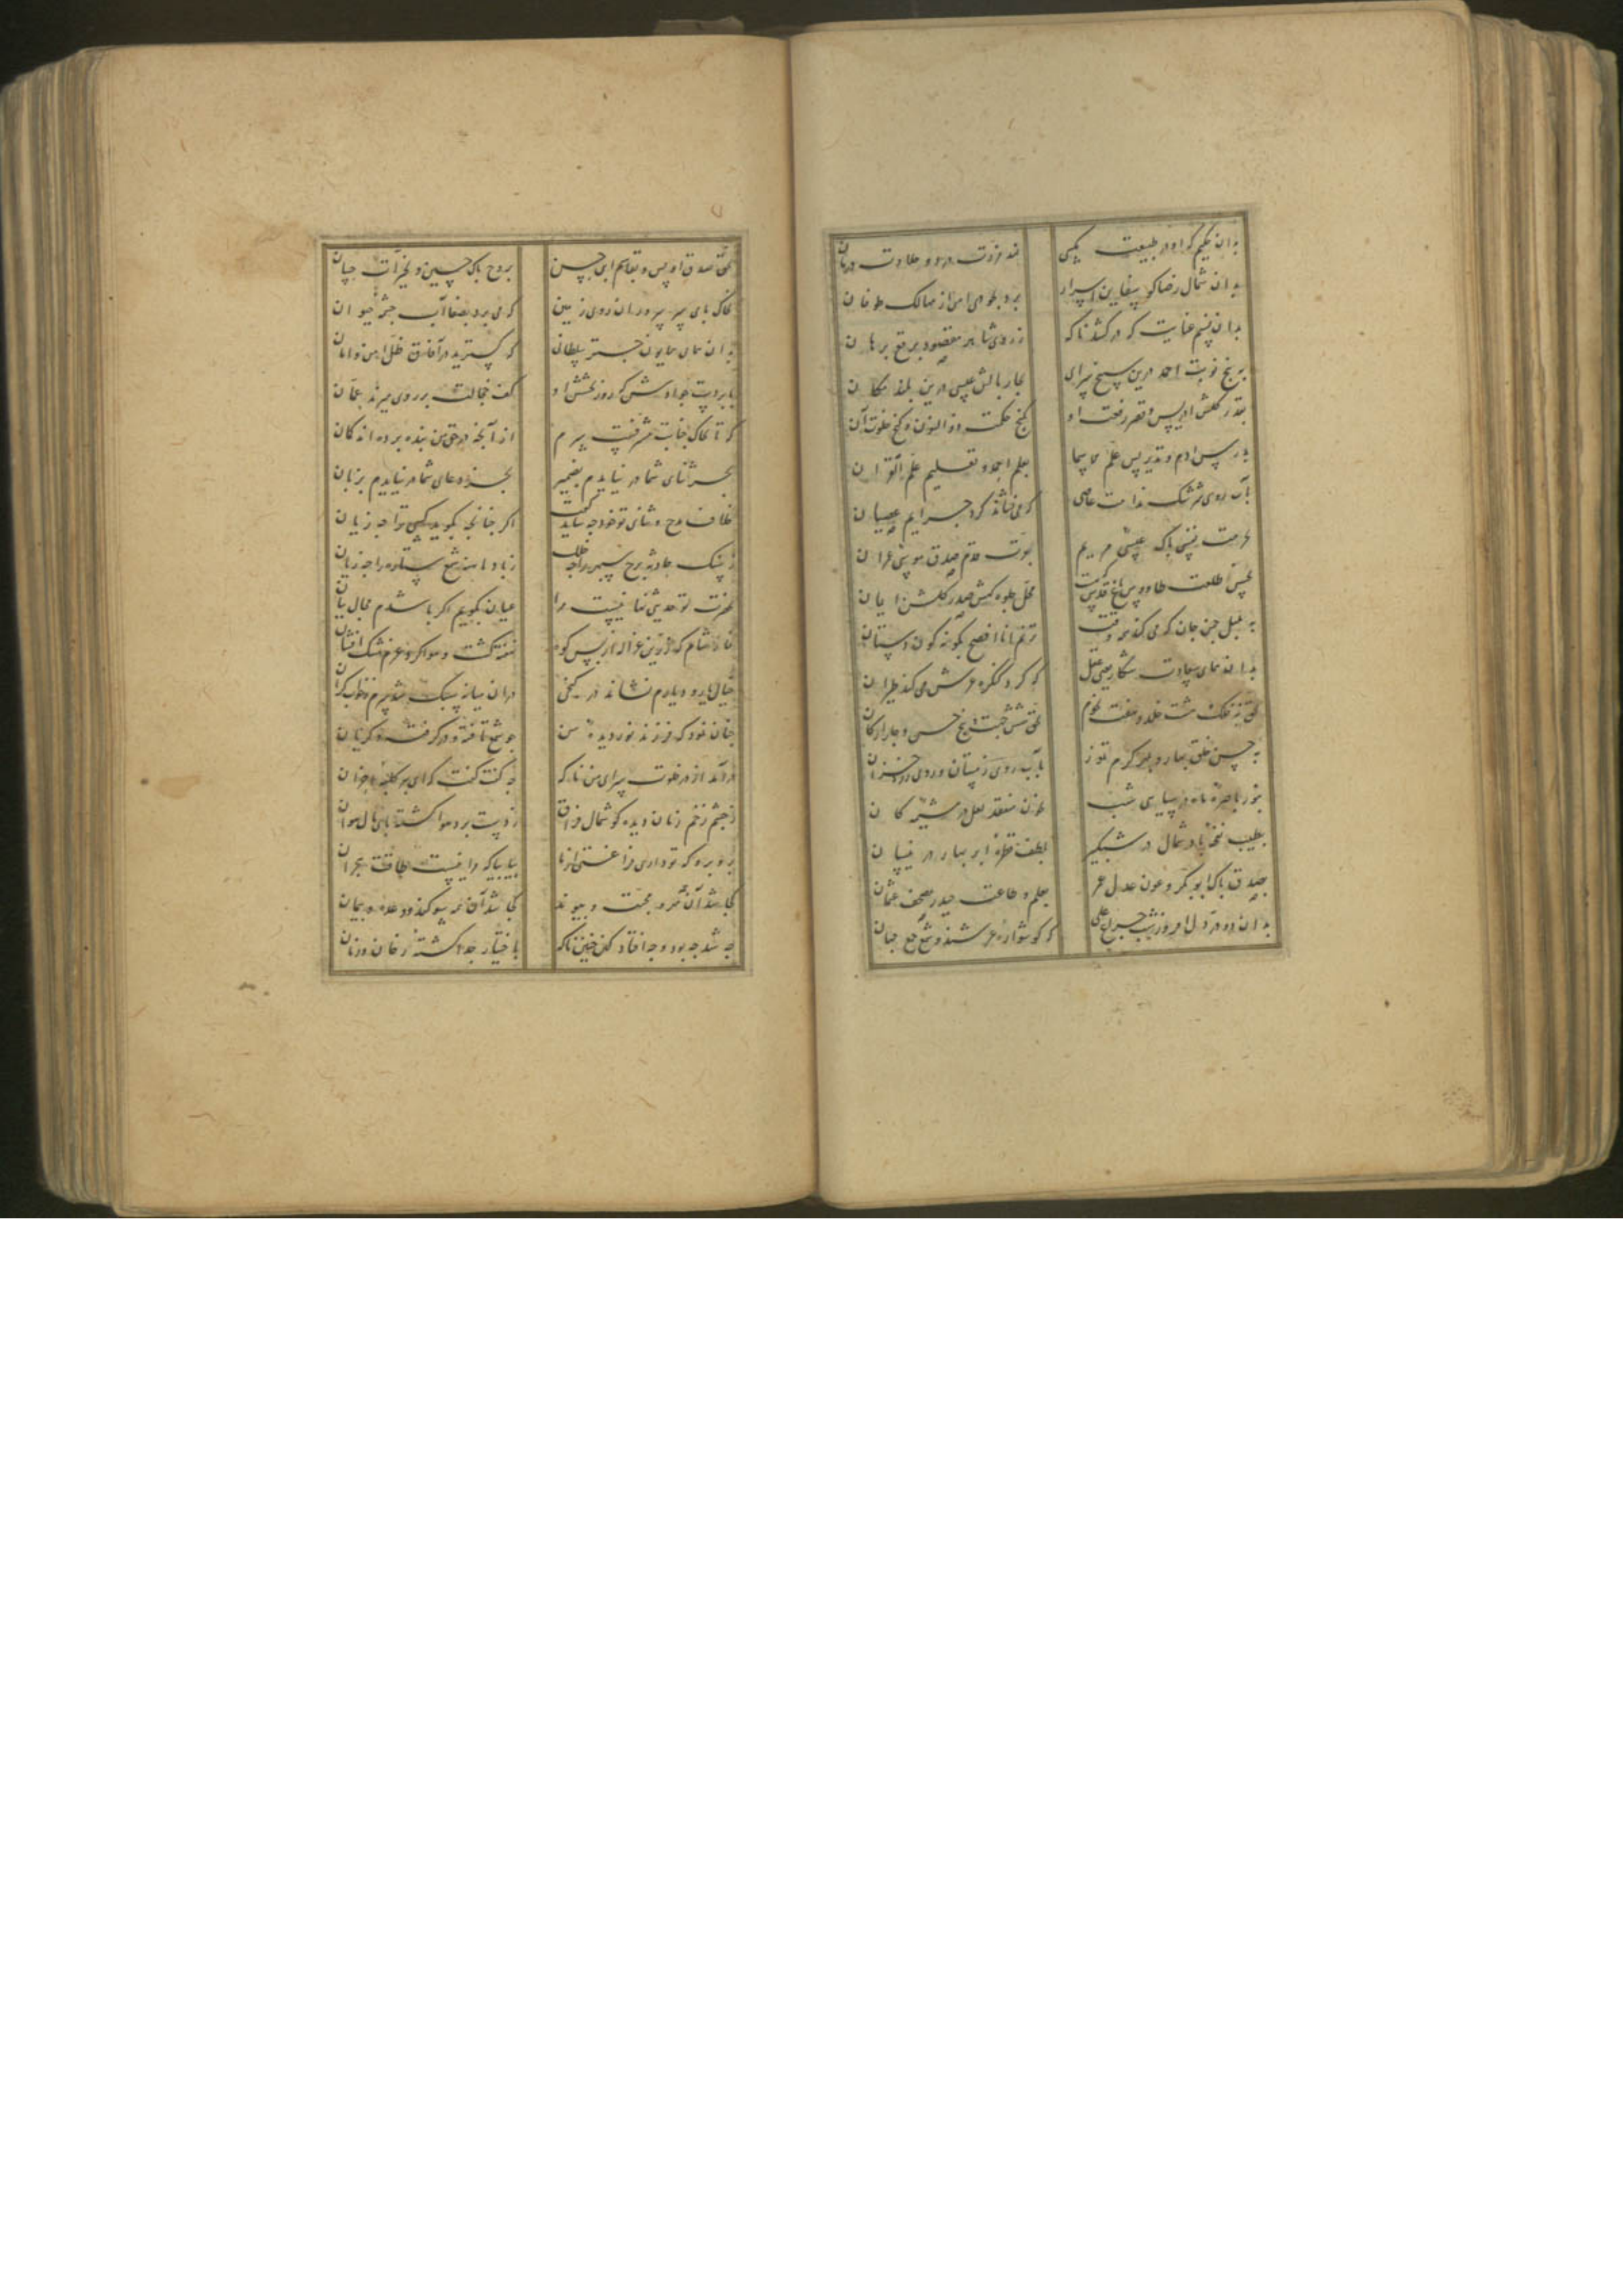 بدان حکیم که او در طبیعت
نهد مرارت درد و حلاوت درمان
بدان شمال رضا کو سفاین اسرار
برد بطوی امن از مهالک طوفان
بدان نسیم عنایت که درکشد ناکه
ز روی شاهد مقصود برقع برهان
به پنج نوبت احمد درین سپنج سرای
بچار بالش عیسی درین بلند مکان
بقدر کلشن ادریس و قصر رفعت او
بکنج حکمت ذوالنون و کنج خلوت آن
بدرس ادم و تدریس علم الاسما
بعلم احمد و تعلیم علم القران
بآب روی سرشک ندامت عاصی
که می نشاند کرد جرایم عصیان
بحرمت نفس پاک عیسی مریم
بقوت قدم صدق موسی عمران
بحسن طلعت طاووس باغ قدوسی
بمحفل جلوه کهش صدر کلشن ایمان
به بلبل چمن جان که می کند همه وقت
ترنم انا افصح بکونه کون دستان
بدان همای سعادت شکار یعنی عقل
که کرد کنکره عرش می کند طیران
بحق نه فلک هشت خلد و هفت نجوم
بحق شش جهت و پنج حس و چار ارکان
به حسن خلق بهار و بمهر کرم تموز
بآب روی زمستان و روی زرد خزان
بنور باصره ماه در سیاهی شب
بخون منعقد لعل در مشیمه کان
بطیب نفخه باد شمال در شبکیر
بلطف قطره ابر بهار در نیسان
بصدق پاک ابوبکر و عون عدل عمر
بعلم و طاعت حیدر بمصحف عثمان
بدان دو در دل افروز زیب جبرئیل
که کوشواره عرشند و شمع جمع جنان
بحق صدق اویس و بقاسم ابن حسن
بروح پاک حسین و بخیرات حسان
بخاک پای سپهر پروران روی زمین
که می برد بصفا آب چشمه حیوان
بدان همای همایون چتر سلطانی
که کسترید در آفاق ظل امن و امان
بابر دست جوادش که روز بخشش او
کف خجالت بر روی میزند عمان
که تا بخاک جنابت شرف نبست سرم
از آنچه در حق من بنده برده اند کمان
بجز ثنای شما در نیایدم بضمیر
بجز دعای شما در نیایدم بزبان
خلاف مدح و ثنای تو خود چه شاید کفت
اکر چنانچه بکوید کسی ترا چه زیان
ز سنک حادثه برج سپهر را چه خلل
ز باد هاویه شمع ستاره را چه زیان
بحضرت تو حدیثی نهانیست مرا
عیان بکویم اکر باشدم مجال بیان
نماز شام که زرین غزاله از پس کوه
نهفته کشت و هوا کرد عزم مشک افشان
خیال یار و دیارم نشاند در کنجی
دران میانه سبک شد سرم ز خواب کران
چنان نمود که فرزند نور دیده من
چو شمع تافته و در کرفته و کریان
درآمد از در خلوت سرای من ناکه
چه کفت کفت که ای پیر کلبه احزان
ز چشم زخم زمان دیده کوشمال فراق
ز دست برد هوا کشته پایمال هوان
برو برو که تو داری فراغتی از ما
بیا بیا که مرا نیست طاقت هجران
کجا شد آن همه مهر و محبت و پیوند
کجا شد آن همه سوکند و وعده و پیمان
چه شد چه بود و چه افتاد کین چنین ناکه
باختیار جدا کشته ز خان و مان